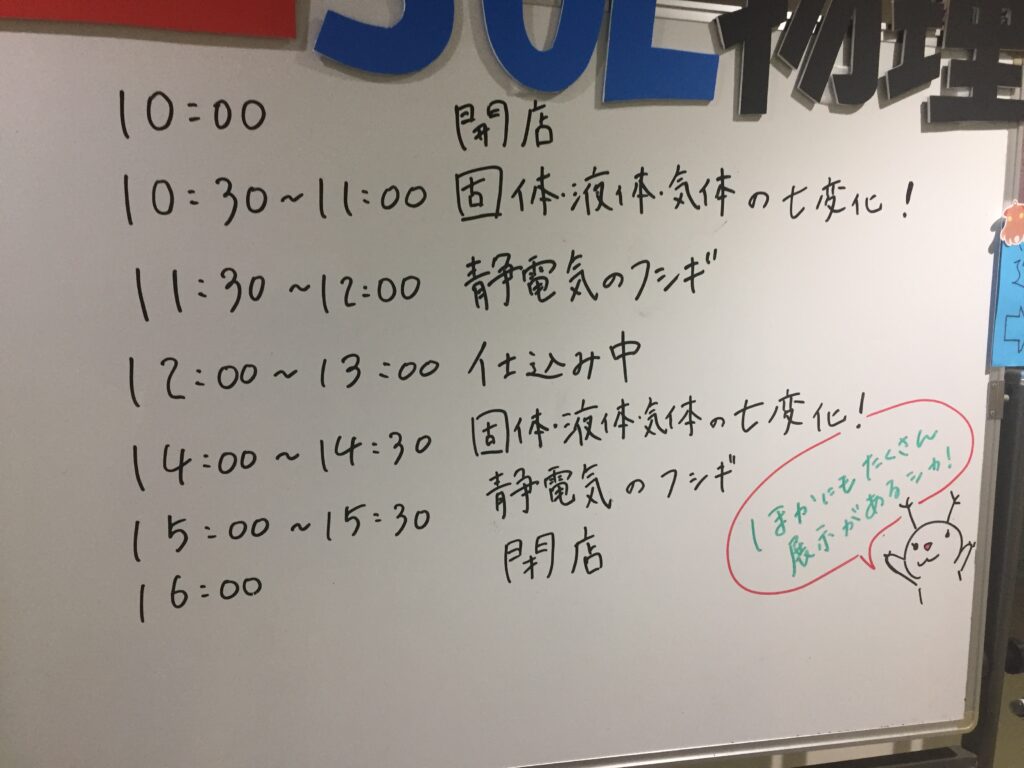 物理
10:00 開店
10:30~11:00 固体・液体・気体の七変化!
11:30~12:00 静電気のフシギ
12:00~13:00 仕込み中
14:00~14:30 固体・液体・気体の七変化!
15:00~15:30 静電気のフシギ
16:00 閉店
ほかにもたくさん
展示があるシカ!